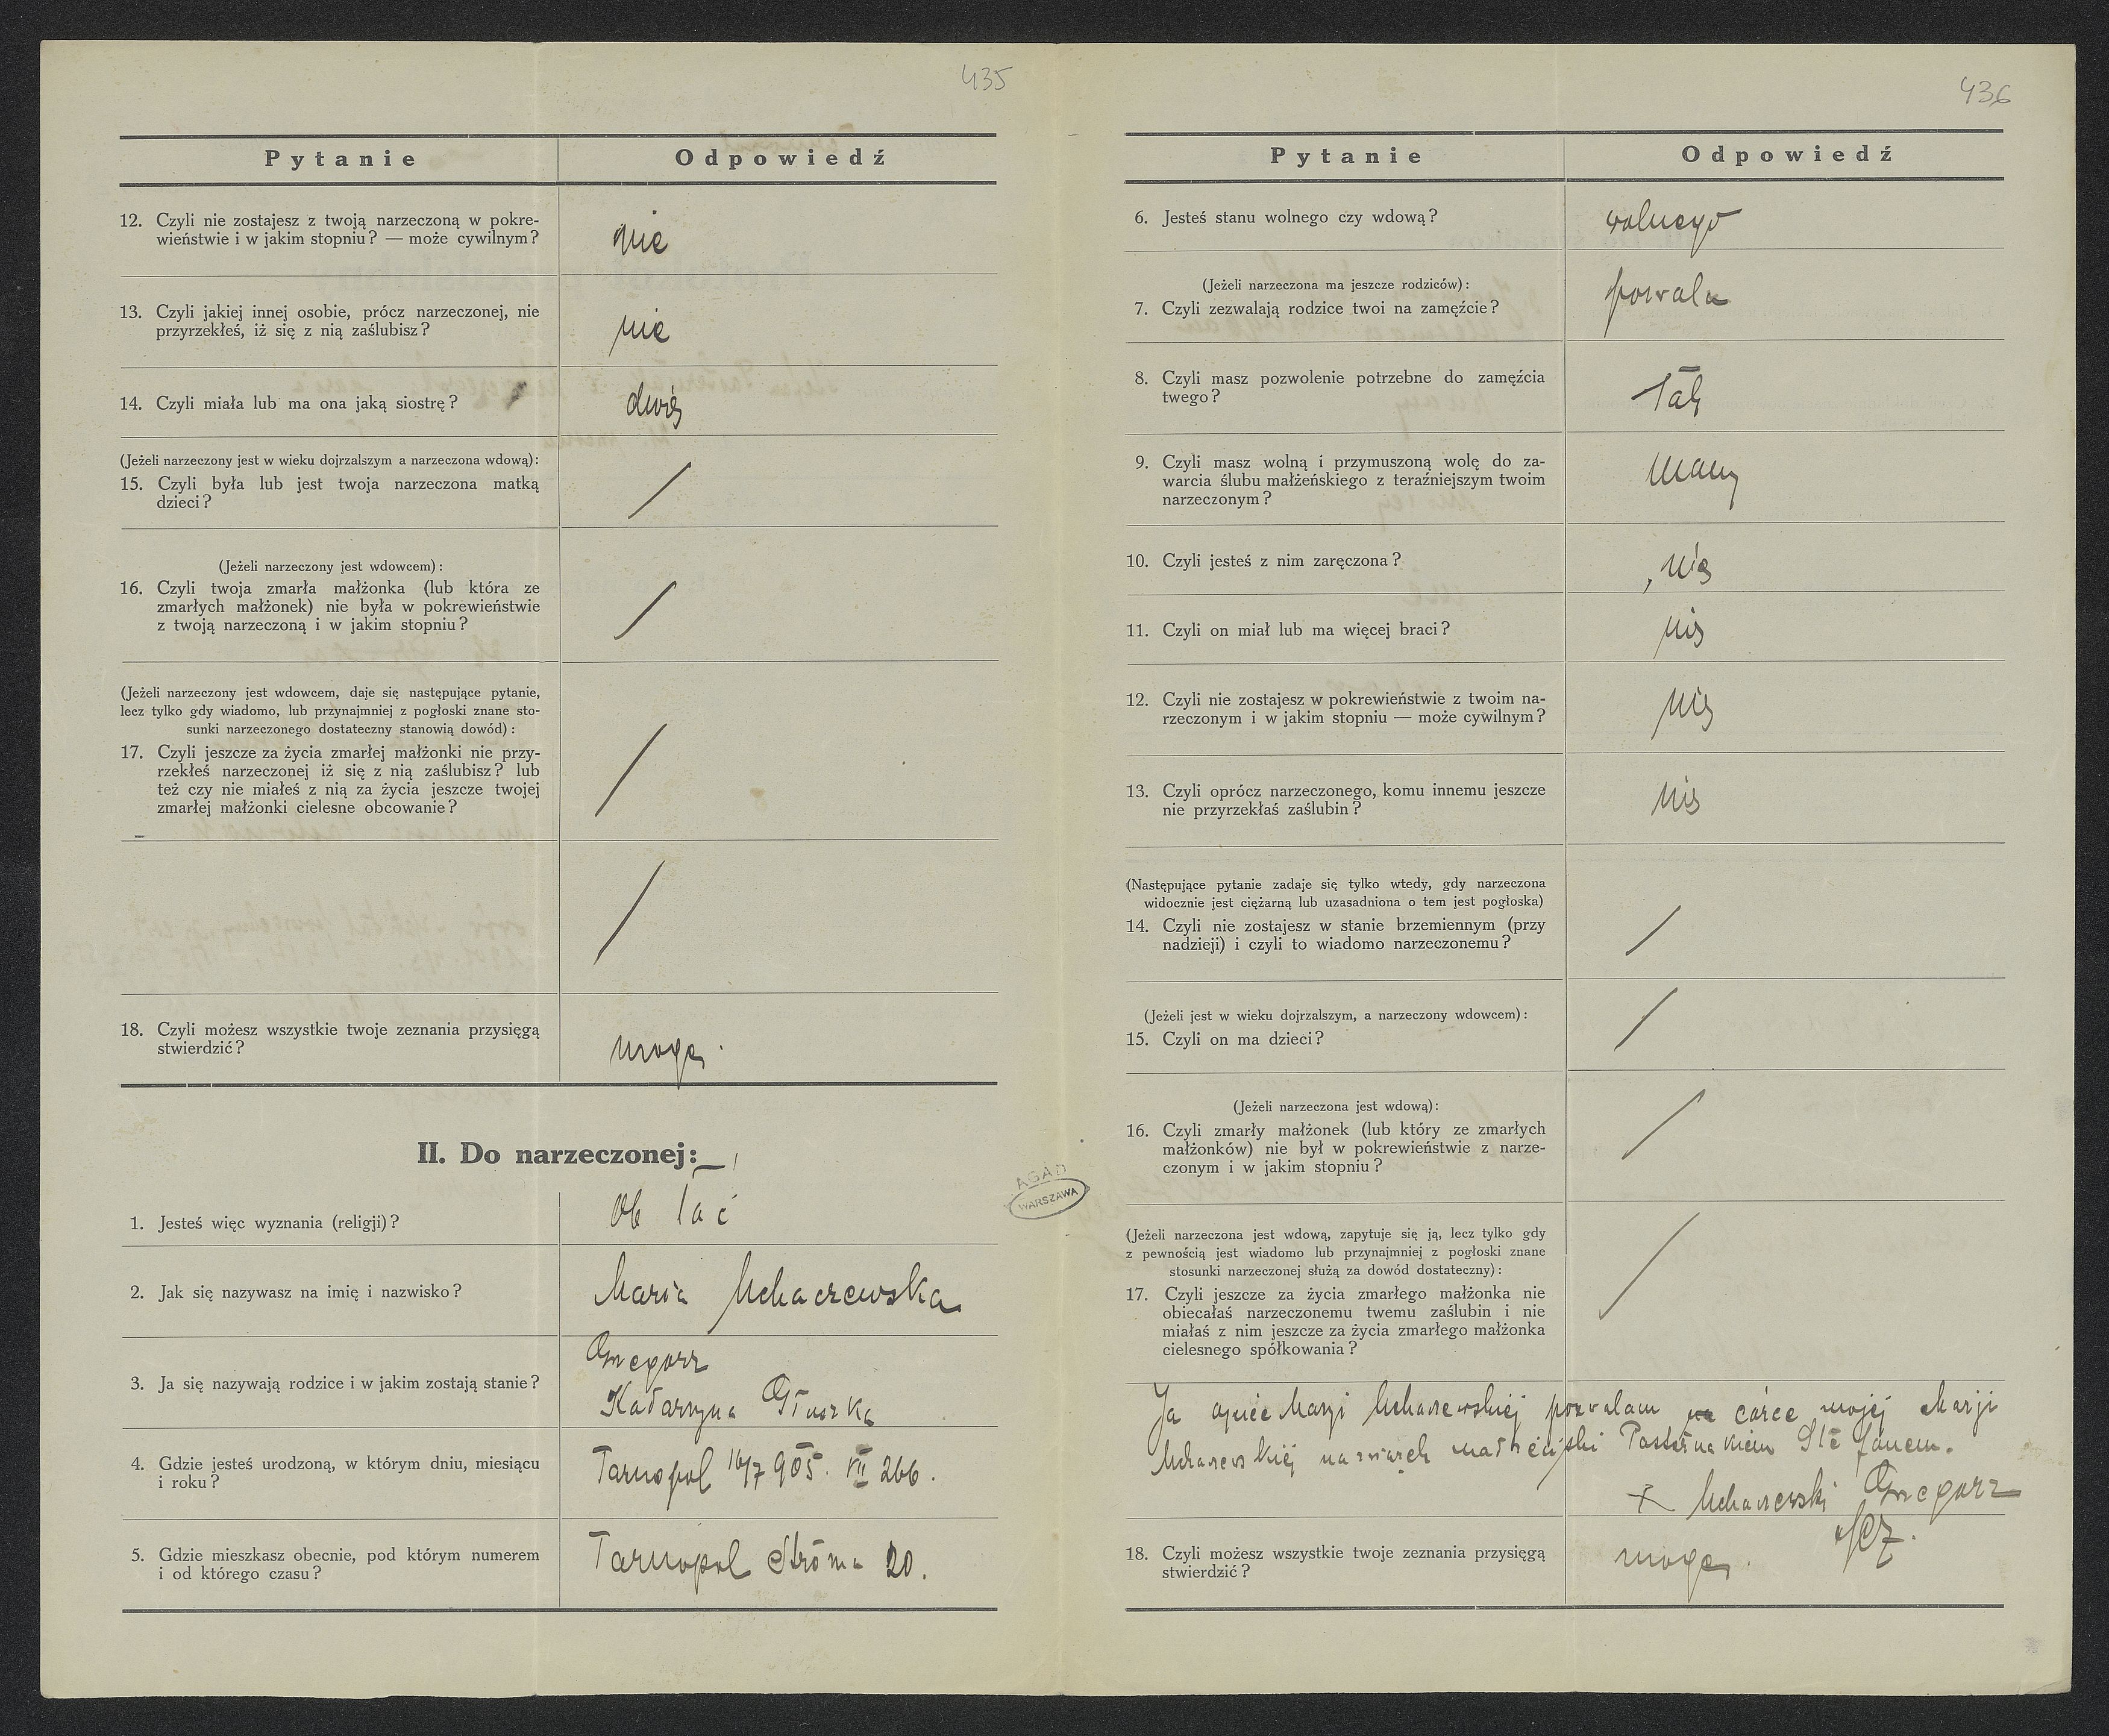 435
Pytanie
Odpowiedź
12. Czyli nie zostajesz z twoją narzeczoną w pokre-
wieństwie i w jakim stopniu? — może cywilnym?
nie
13. Czyli jakiej innej osobie, prócz narzeczonej, nie
przyrzekłeś, iż się z nią zaślubisz?
nie
14. Czyli miała lub ma ona jaką siostrę?
dwie
(Jeżeli narzeczony jest w wieku dojrzalszym a narzeczona wdową):
15. Czyli była lub jest twoja narzeczona matką
dzieci?
/
(Jeżeli narzeczony jest wdowcem):
16. Czyli twoja zmarła małżonka (lub która ze
zmarłych małżonek) nie była w pokrewieństwie
z twoją narzeczoną i w jakim stopniu?
/
(Jeżeli narzeczony jest wdowcem, daje się następujące pytanie,
lecz tylko gdy wiadomo, lub przynajmniej z pogłoski znane sto-
sunki narzeczonego dostateczny stanowią dowód):
17. Czyli jeszcze za życia zmarłej małżonki nie przy-
rzekłeś narzeczonej iż się z nią zaślubisz? lub
też czy nie miałeś z nią za życia jeszcze twojej
zmarłej małżonki cielesne obcowanie?
/
/
18. Czyli możesz wszystkie twoje zeznania przysięgą
stwierdzić?
mogę.
II. Do narzeczonej:
1. Jesteś więc wyznania (religji)?
ob łac
2. Jak się nazywasz na imię i nazwisko?
Maria Uchaczewska
3. Ja się nazywają rodzice i w jakim zostają stanie?
Grzegorz
Katarzyna Głuszka
4. Gdzie jesteś urodzoną, w którym dniu, miesiącu
i roku?
Tarnopol 16/7 905. VII 266.
5. Gdzie mieszkasz obecnie, pod którym numerem
i od którego czasu?
Tarnopol Stroma 20.
AGAD
WARSZAWA
436
Pytanie
Odpowiedź
6. Jesteś stanu wolnego czy wdową?
wolnego
(Jeżeli narzeczona ma jeszcze rodziców):
7. Czyli zezwalają rodzice twoi na zamęźcie?
8. Czyli masz pozwolenie potrzebne do zamęźcia
twego?
Tak
9. Czyli masz wolną i przymuszoną wolę do za-
warcia ślubu małżeńskiego z teraźniejszym twoim
narzeczonym?
mam
10. Czyli jesteś z nim zaręczona?
nie
11. Czyli on miał lub ma więcej braci?
nie
12. Czyli nie zostajesz w pokrewieństwie z twoim na-
rzeczonym i w jakim stopniu — może cywilnym?
nie
13. Czyli oprócz narzeczonego, komu innemu jeszcze
nie przyrzekłaś zaślubin?
nie
(Następujące pytanie zadaje się tylko wtedy, gdy narzeczona
widocznie jest ciężarną lub uzasadniona o tem jest pogłoska)
14. Czyli nie zostajesz w stanie brzemiennym (przy
nadzieji) i czyli to wiadomo narzeczonemu?
/
(Jeżeli jest w wieku dojrzalszym, a narzeczony wdowcem):
15. Czyli on ma dzieci?
/
(Jeżeli narzeczona jest wdową):
16. Czyli zmarły małżonek (lub który ze zmarłych
małżonków) nie był w pokrewieństwie z narze-
czonym i w jakim stopniu?
/
(Jeżeli narzeczona jest wdową, zapytuje się ją, lecz tylko gdy
z pewnością jest wiadomo lub przynajmniej z pogłoski znane
stosunki narzeczonej służą za dowód dostateczny):
17. Czyli jeszcze za życia zmarłego małżonka nie
obiecałaś narzeczonemu twemu zaślubin i nie
miałaś z nim jeszcze za życia zmarłego małżonka
cielesnego spółkowania?
/
Ja ojciec Marji Uchaczewskiej pozwalam na córce mojej Marji
Uchaczewskiej na związek małżeński Pasternakiem Stefanem.
+ Uchaczewski Grzegorz
18. Czyli możesz wszystkie twoje zeznania przysięgą
stwierdzić?
mogę.